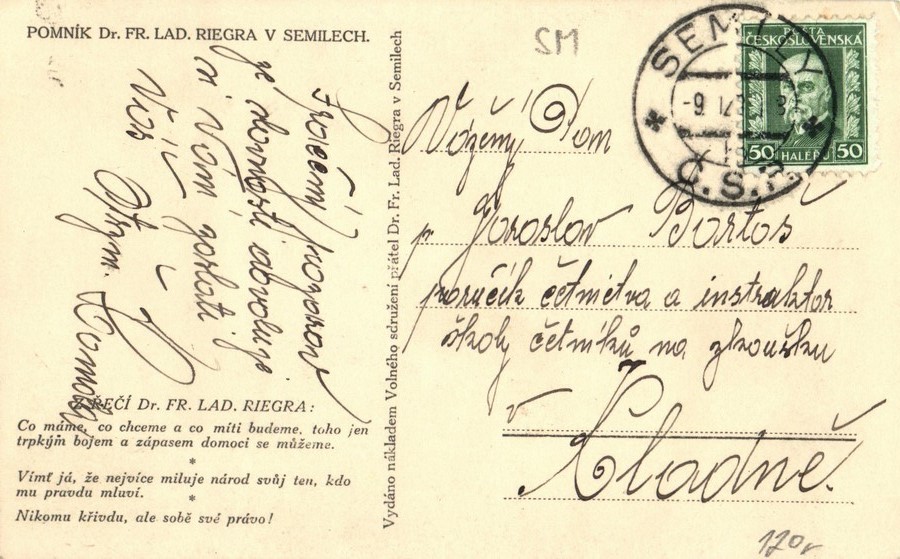 POMNÍK Dr. FR. LAD. RIEGRA V SEMILECH.
SM
SEMILY
Č.S.R.
POŠTA
ČESKOSLOVENSKA
50 HALÉŘŮ 50
Srdečný pozdrav
ze slavnosti dovoluje
si Vám zaslati
Váš
Vydáno nákladem Volného sdružení přátel Dr. Fr. Lad. Riegra v Semilech
Vážený Pan
p. Jaroslav Bartoš
poručík četnictva a instruktor
školy četníků na zkoušku
v
Kladně.
Z ŘEČÍ Dr. FR. LAD. RIEGRA:
Co máme, co chceme a co míti budeme, toho jen
trpkým bojem a zápasem domoci se můžeme.
*
Vímť já, že nejvíce miluje národ svůj ten, kdo
mu pravdu mluví.
*
Nikomu křivdu, ale sobě své právo!
120,-